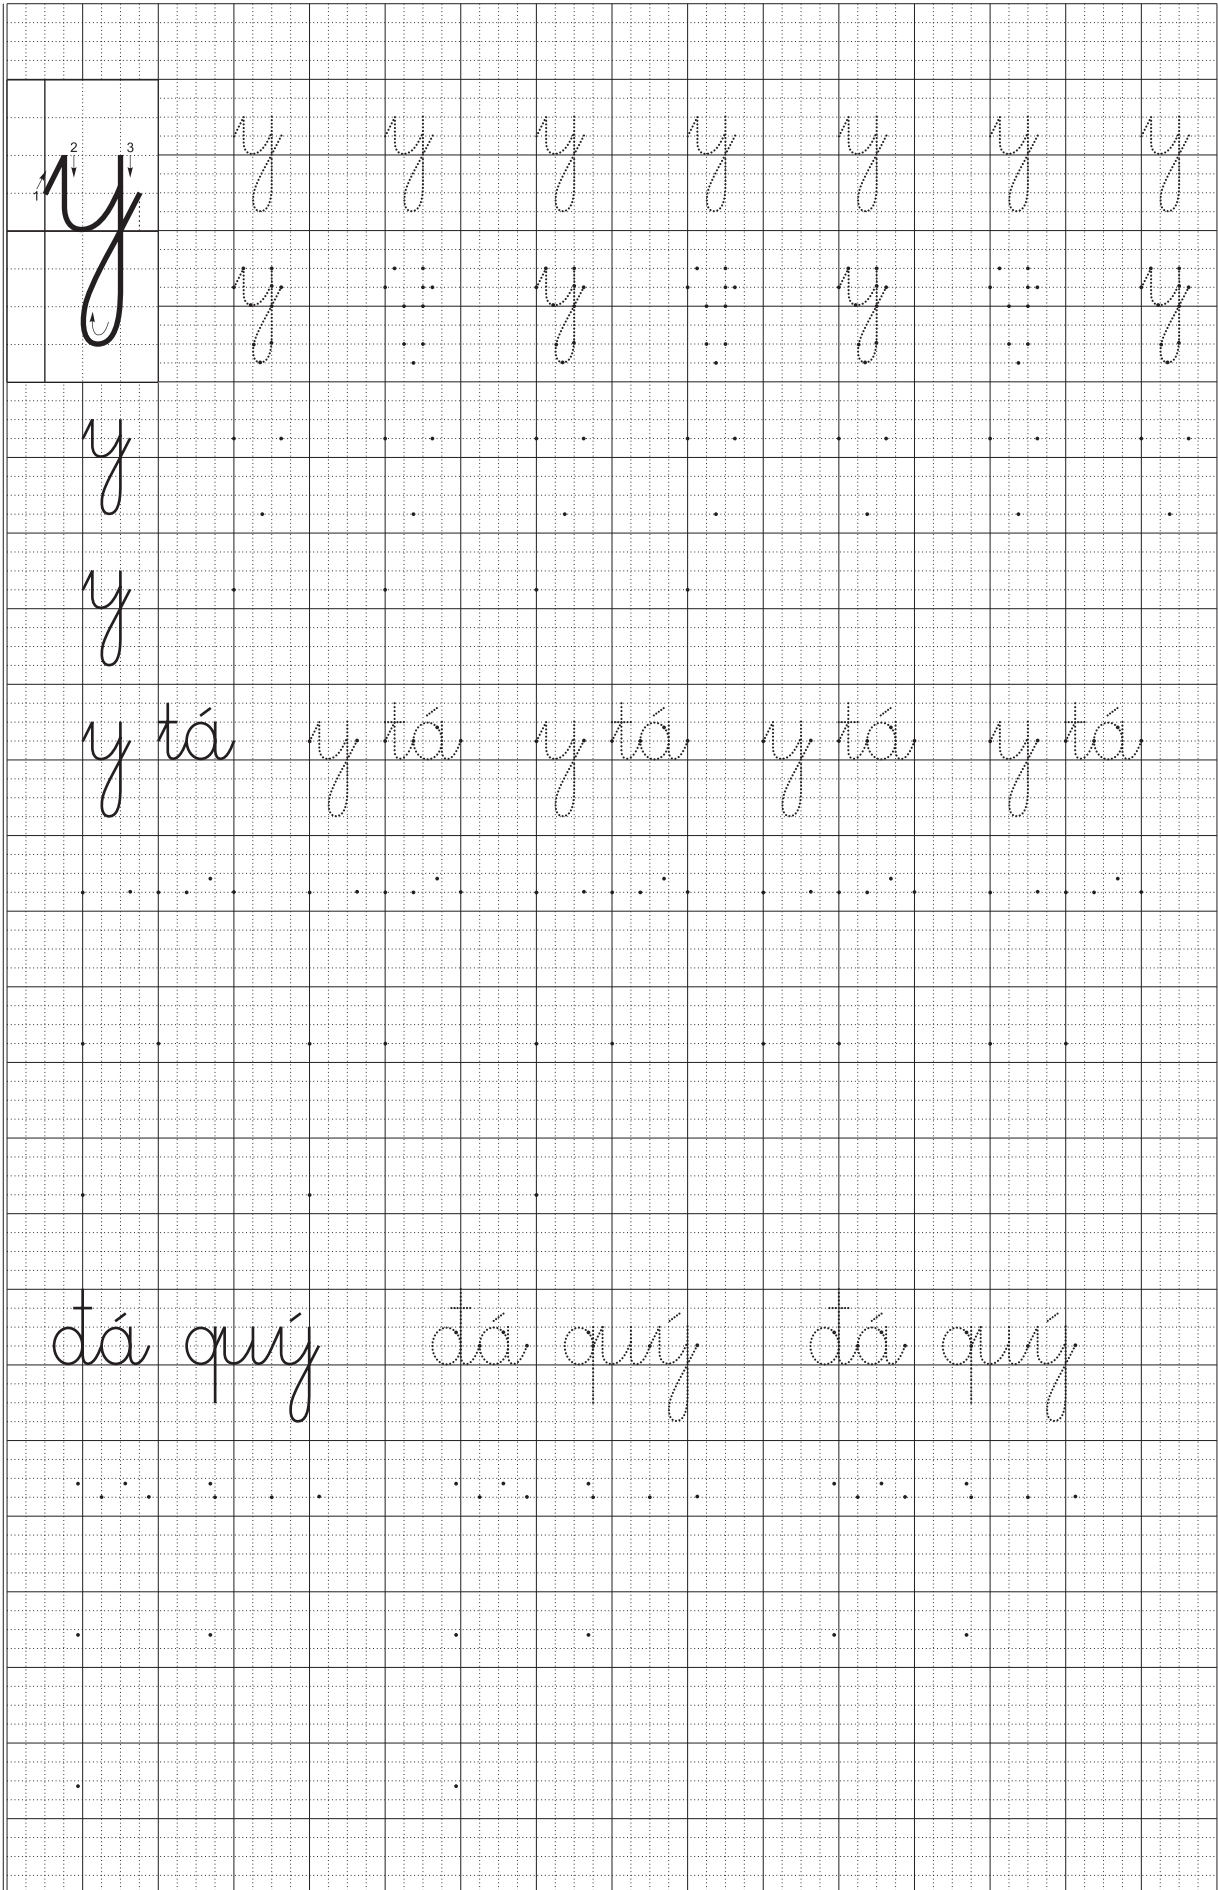 y y y y y y y
1 2 3
y
y y y y
y
y
y tá y tá y tá y tá y tá
đá quý đá quý đá quý